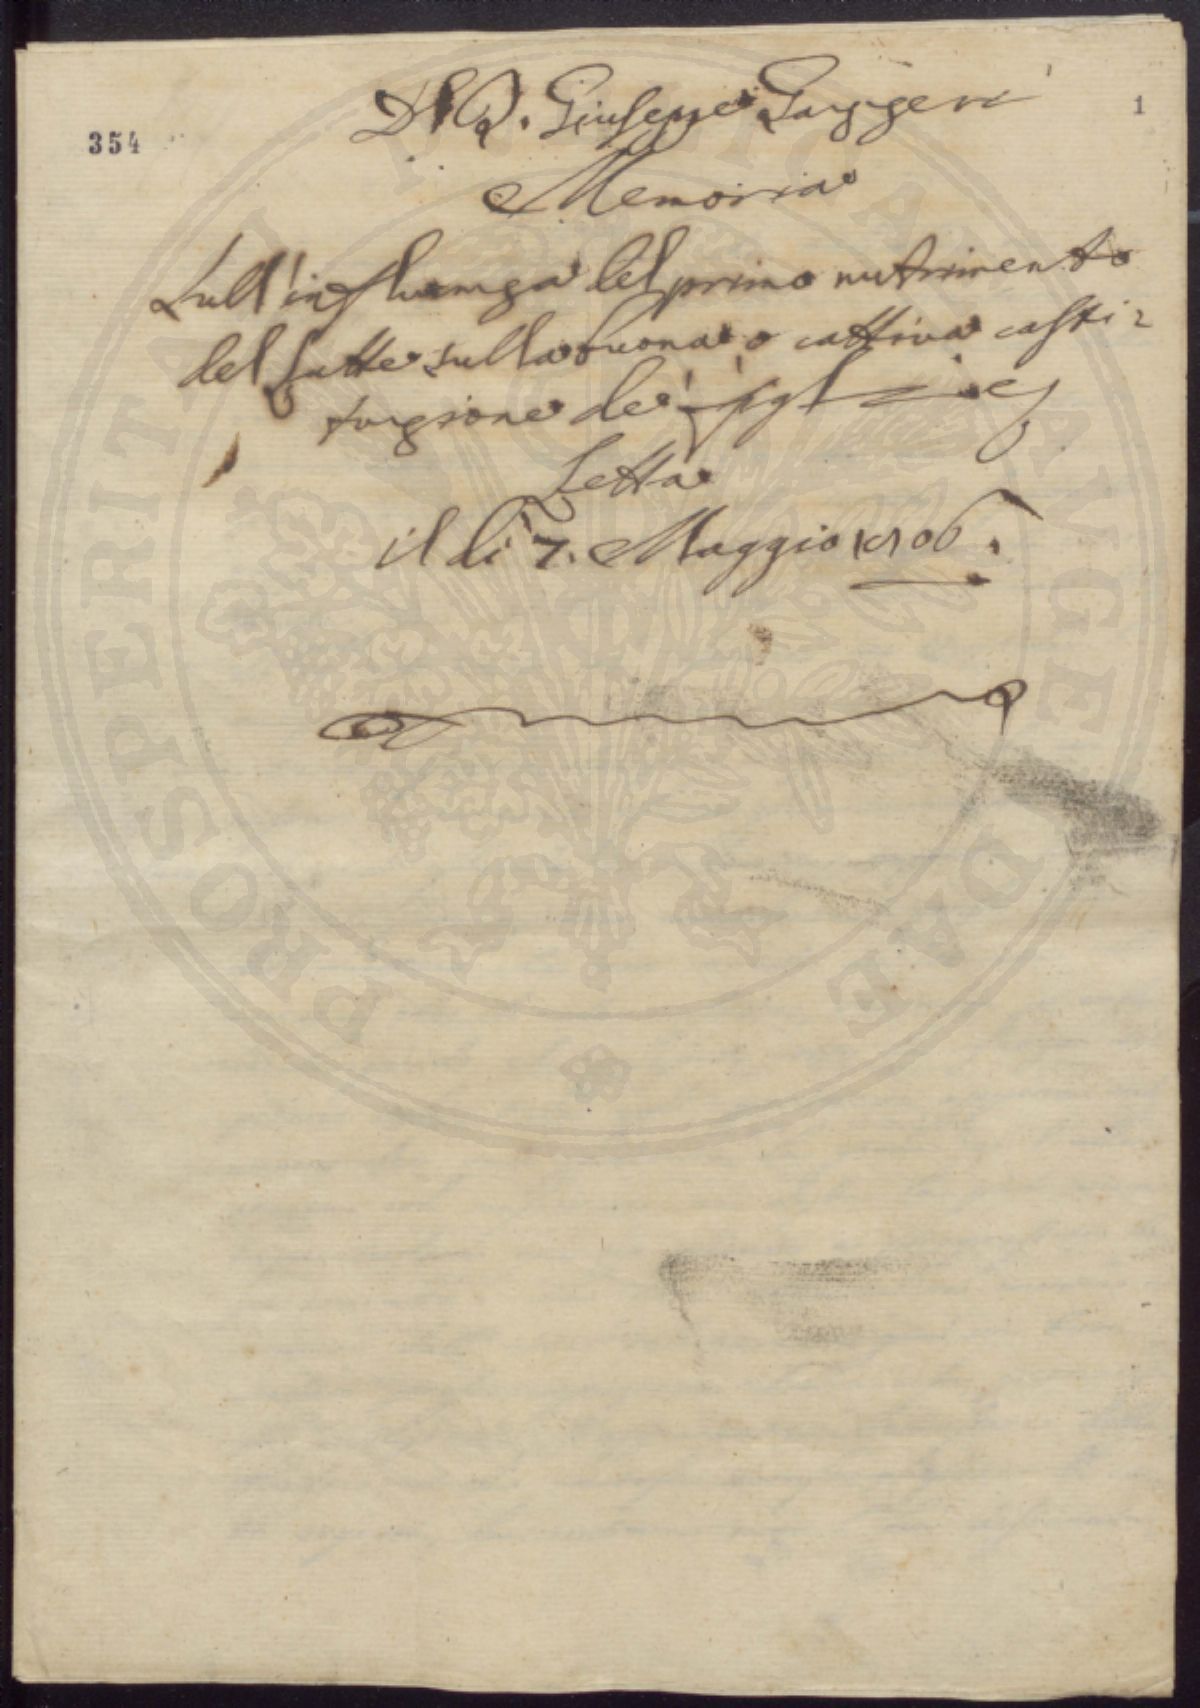 354
1
Del D. Giuseppe
Memoria
Sull'influenza del primo nutrimento
del Latte sulla buona o cattiva costi=
tuzione de' figli
Letta
il dì 7. Maggio 1806.
PROSPERITATI PVBLICAE AVGENDAE